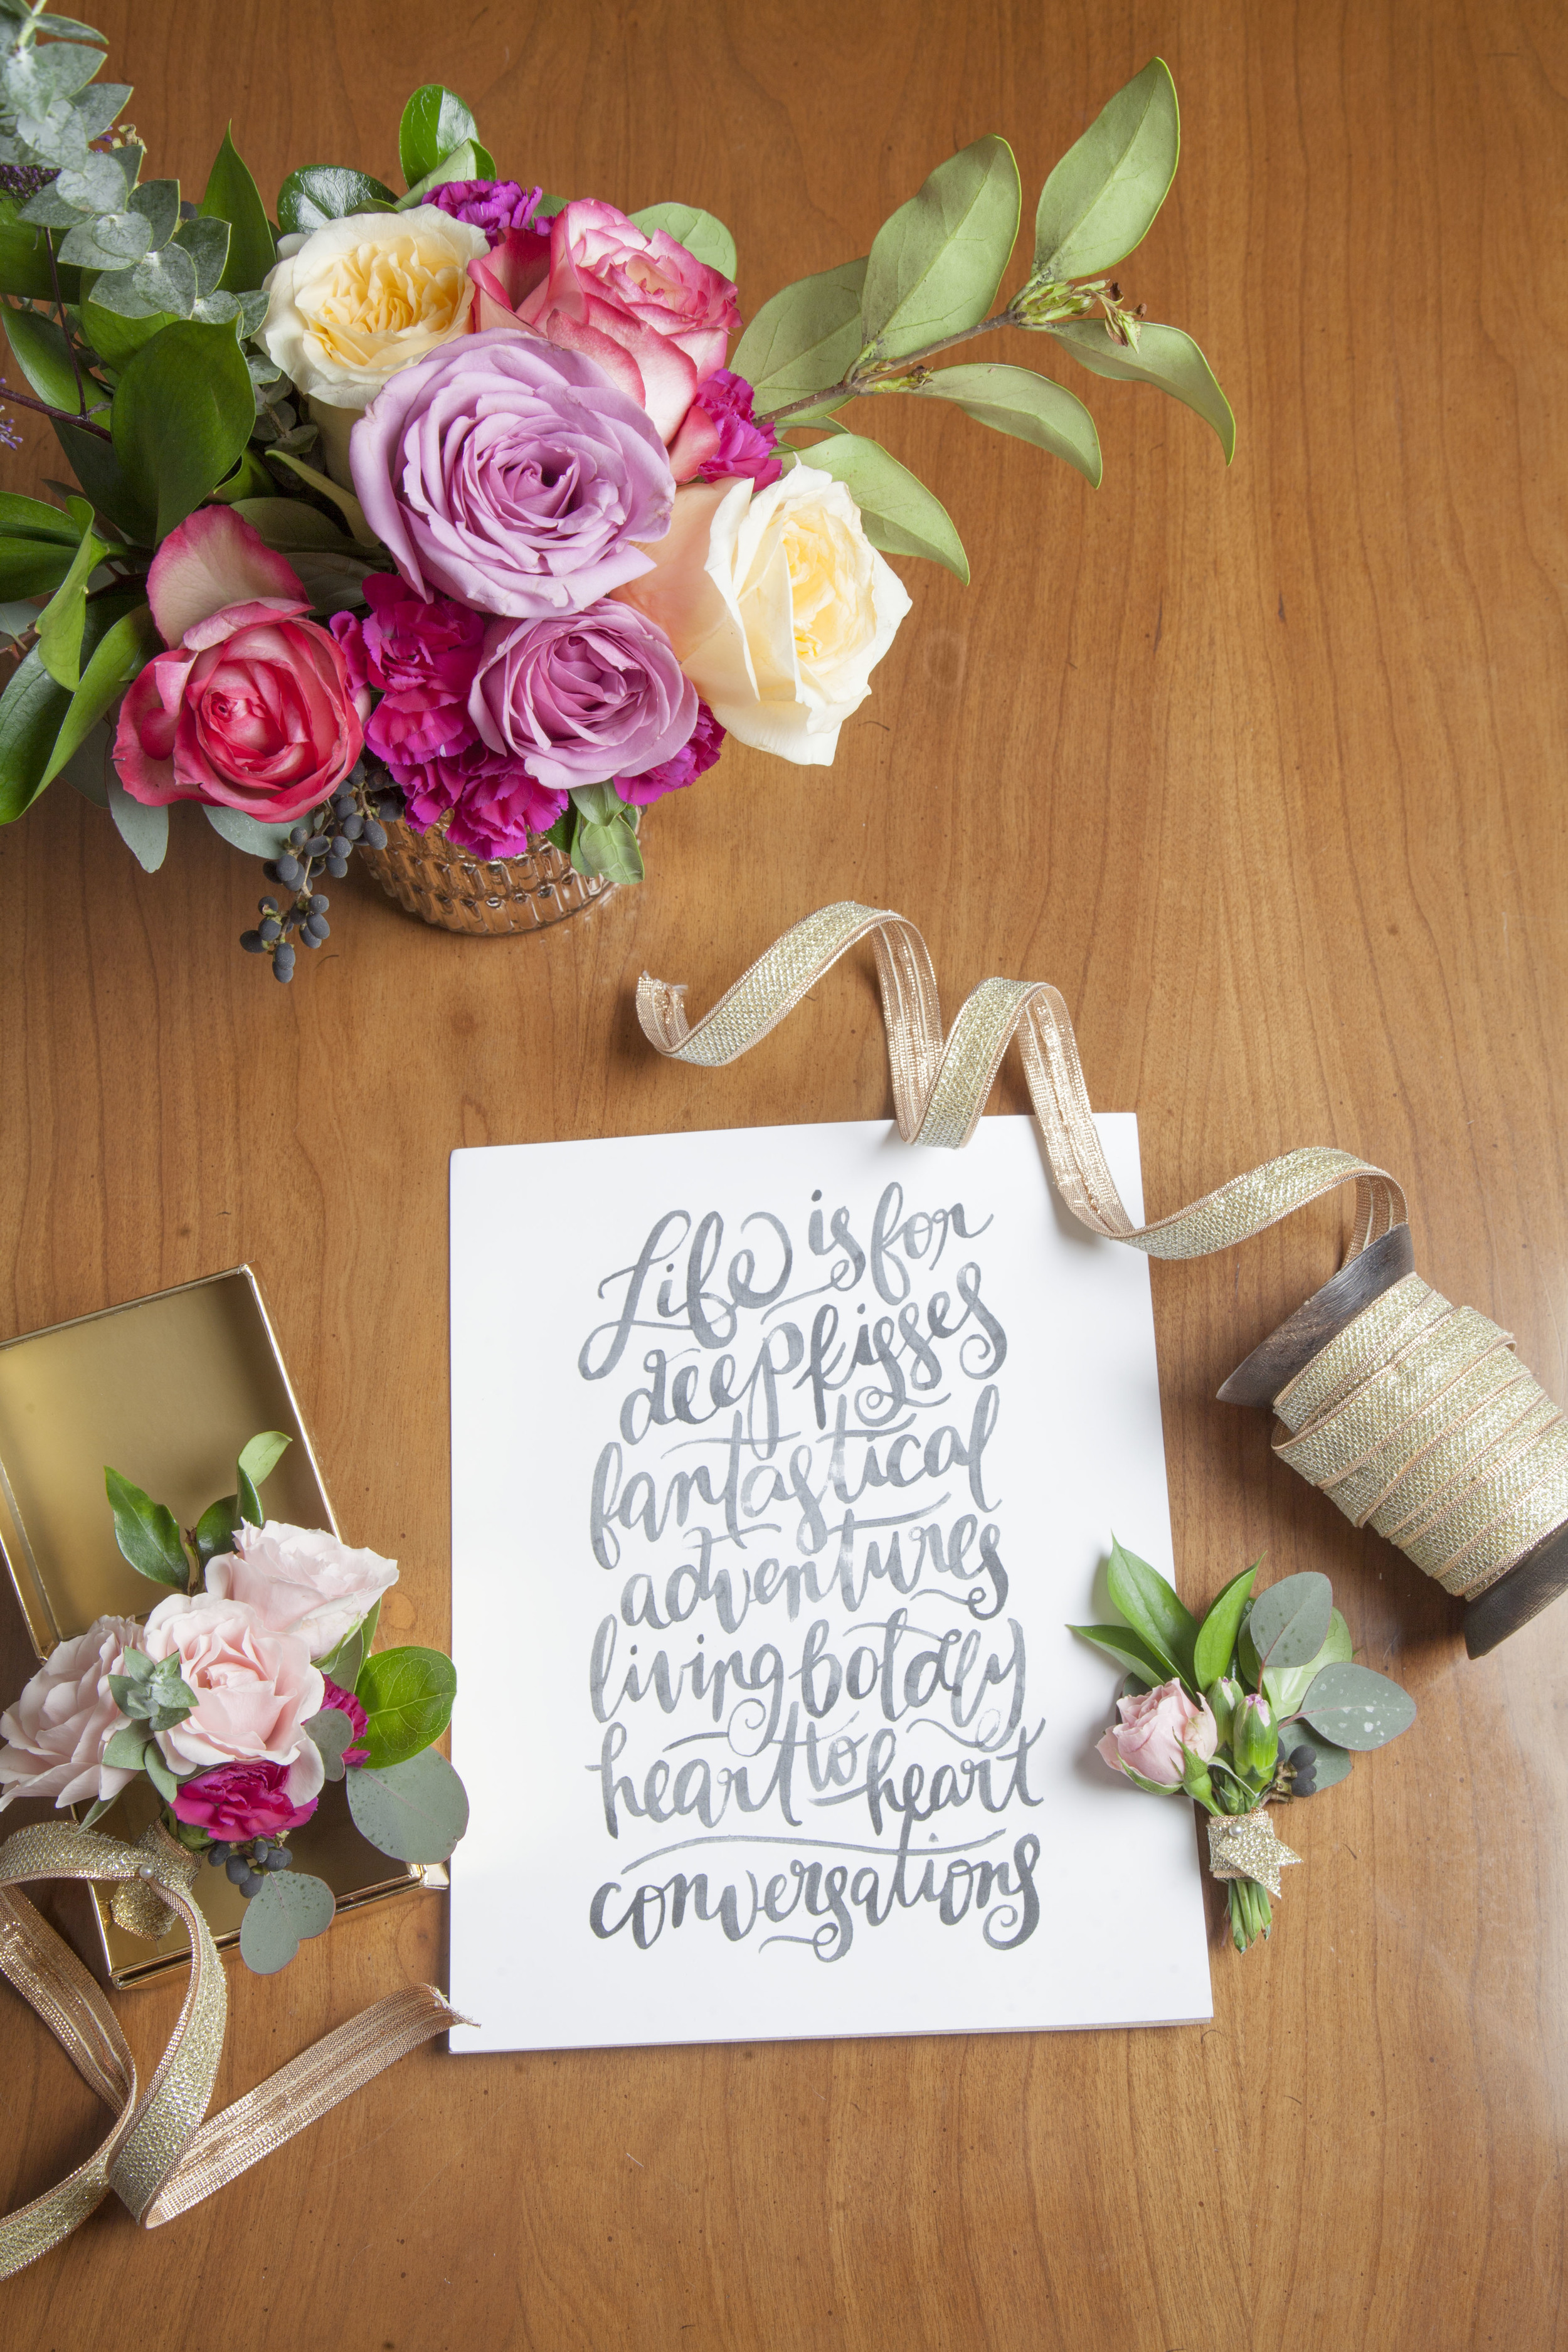 Life is for
deep kisses
fantastical
adventures
living boldly
heart to heart
conversations